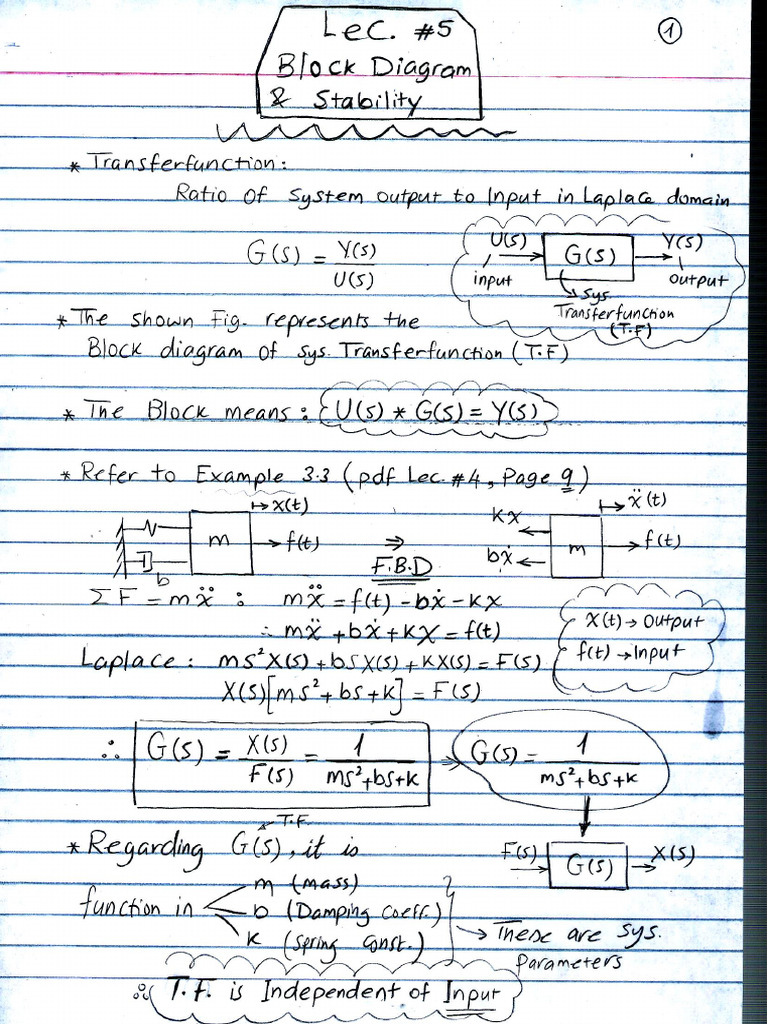 Lec. #5
①
Block Diagram
& Stability
* Transferfunction:
Ratio of System output to Input in Laplace domain
G(s) = Y(s)/U(s)
U(s) G(s) Y(s)
input output
Sys.
Transferfunction
(T.F)
* The shown Fig. represents the
Block diagram of sys. Transferfunction (T.F)
* The Block means: U(s) * G(s) = Y(s)
* Refer to Example 3.3 (pdf Lec. #4, Page 9)
x(t) m f(t) b
⇒
F.B.D
kx bẋ m ẍ(t) f(t)
ΣF = mẍ : mẍ = f(t) - bẋ - kx
∴ mẍ + bẋ + kx = f(t)
x(t) → Output
f(t) → Input
Laplace: ms²X(s) + bsX(s) + kX(s) = F(s)
X(s)[ms² + bs + k] = F(s)
∴ G(s) = X(s)/F(s) = 1/(ms²+bs+k) ⇒ G(s) = 1/(ms²+bs+k)
T.F.
* Regarding G(s), it is
F(s) G(s) X(s)
function in
m (mass)
b (Damping coeff.)
k (spring const.)
→ These are sys.
parameters
∴ T.F. is Independent of Input